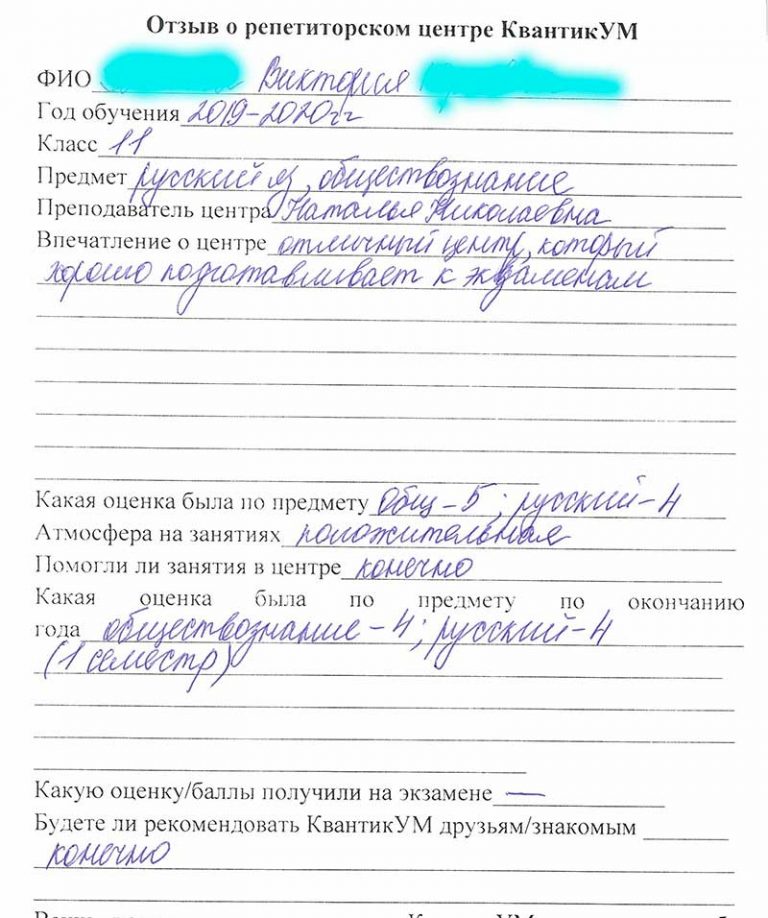 Отзыв о репетиторском центре КвантикУМ
ФИО Виктория
Год обучения 2019-2020гг
Класс 11
Предмет русский яз, обществознание
Преподаватель центра Наталья Николаевна
Впечатление о центре отличный центр, который
хорошо подготавливает к экзаменам
Какая оценка была по предмету общ-5; русский-4
Атмосфера на занятиях положительная
Помогли ли занятия в центре конечно
Какая оценка была по предмету по окончанию
года обществознание-4; русский-4
(1 семестр)
Какую оценку/баллы получили на экзамене —
Будете ли рекомендовать КвантикУМ друзьям/знакомым
конечно